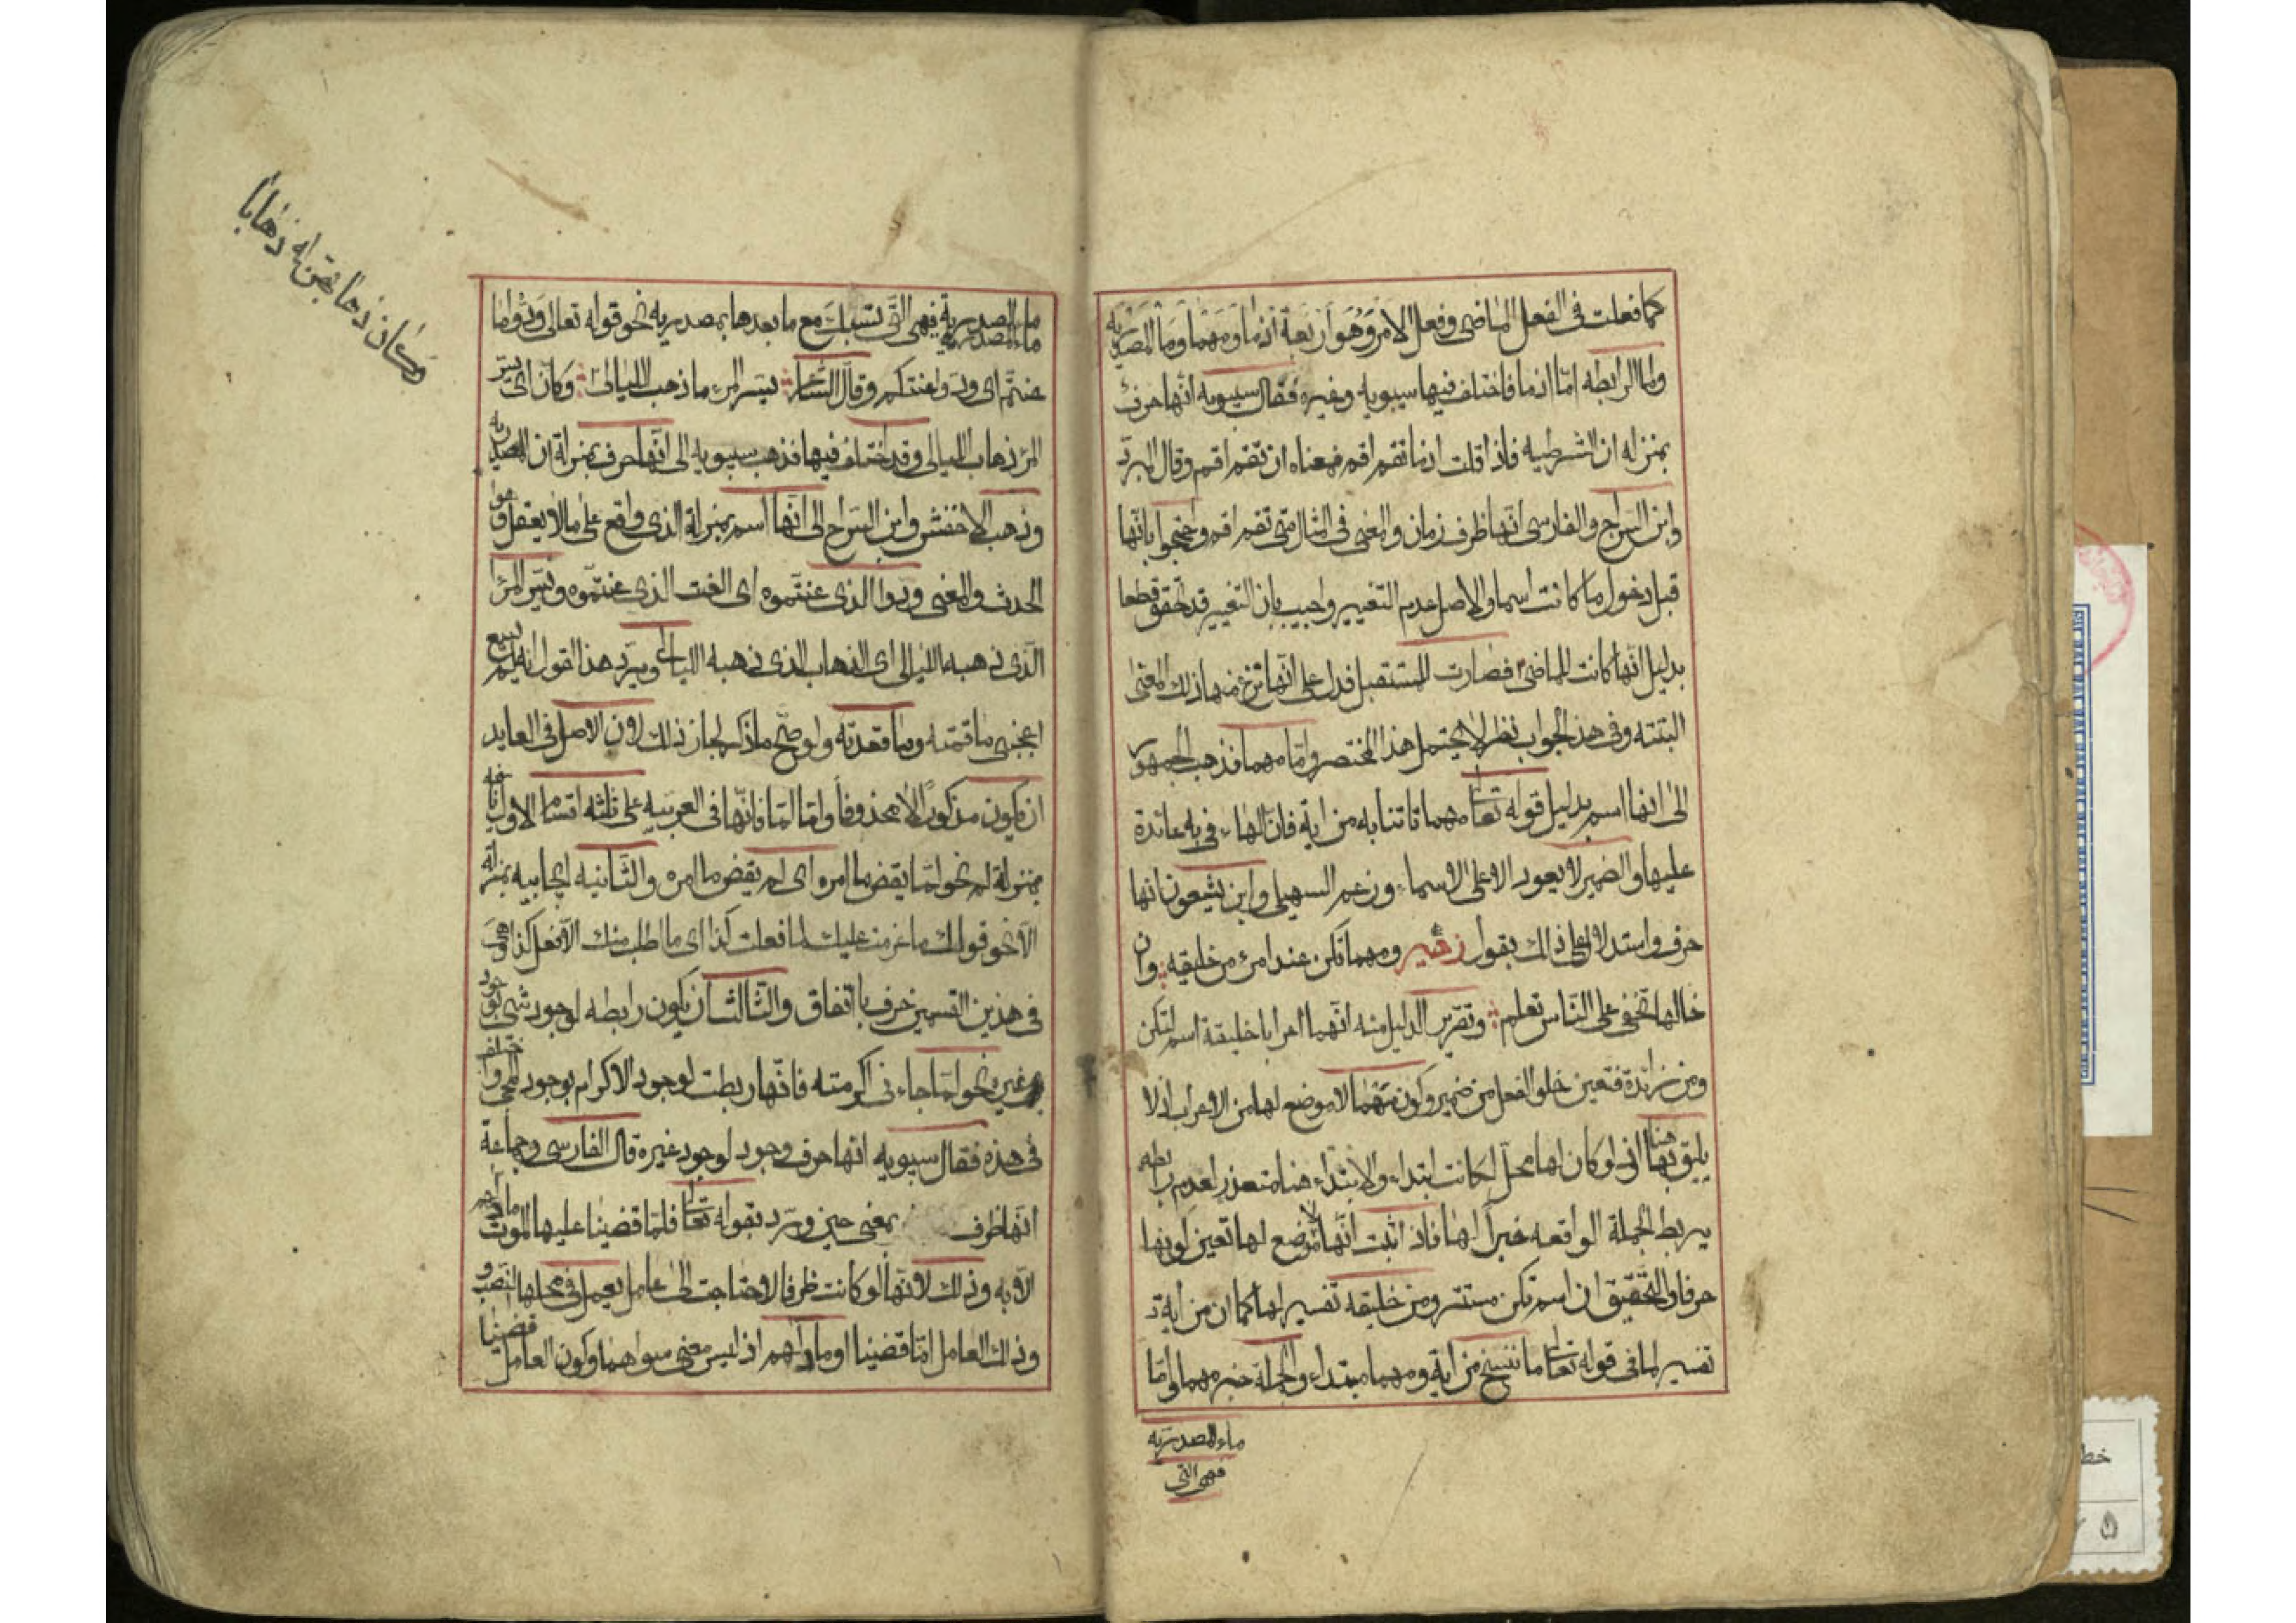 كما فعلت فى الفعل الماضى وفعل الامر وهو اربعة اذما ومهما وما المصدريه
ولما الرابطه اما اذما فاختلف فيها سيبويه وغيره فقال سيبويه انها حرف
بمنزله ان الشرطيه فاذا قلت اذما تقم اقم فمعناه ان تقم اقم وقال المبرد
وابن السراج والفارسى انها ظرف زمان والمعنى فى المثال متى تقم اقم واحتجوا بانها
قبل دخول ما كانت اسما والاصل عدم التغيير واجيب بان التغيير قد تحقق قطعا
بدليل انها كانت للماضى فصارت للمستقبل فدل على انها نزع منها ذلك المعنى
البتته وفى هذا الجواب نظر لا يحتمل هذا المختصر واما مهما فذهب الجمهور
الى انها اسم بدليل قوله تعالى مهما تاتنا به من اية فان الهاء فى به عائدة
عليها والضمير لا يعود الا على الاسماء وزعم السهيلى وابن يشعون انها
حرف واستدلا على ذلك بقول زهير ومهما تكن عند امرء من خليقه وان
خالها تخفى على الناس تعلم وتقرير الدليل منه انهما اعربا خليقة اسم لتكن
ومن زائدة فتعين خلو الفعل من ضمير وكون مهما لا موضع لها من الاعراب اذ لا
يليق بها هنا انى لو كان لها محل لكانت ابتداء والابتداء هنا متعذر لعدم رابطه
يربط الجملة الواقعه خبرا لها فاذا ثبت انها لا موضع لها تعين كونها
حرفا والتحقيق ان اسم تكن مستتر ومن خليقه تفسير لها كما ان من اية
تفسير لما فى قوله تعالى ما ننسخ من اية ومهما مبتداء والجملة خبر مهما واما
ماء المصدريه
فهى التى
ما المصدرية فهى التى تسبك مع ما بعدها بمصدريه نحو قوله تعالى ودوا ما
عنتم اى ودوا عنتكم وقال الشاعر يسر المرء ما ذهب الليالى وكان اى يسر
المرء ذهاب الليالى وقد اختلف فيها فذهب سيبويه الى انها حرف بمنزلة ان المصدريه
وذهب الاخفش وابن السراج الى انها اسم بمنزلة الذى واقع على ما لا يعقل وهو
الحدث والمعنى ودوا الذى عنتموه اى العنت الذى عنتموه ويسر المرء
الذى ذهبه الليالى اى الذهاب الذى ذهبه الليالى ويرد هذا القول انه لم يسمع
اعجبنى ما قمته وما قعدته ولو صح ما ذكر لجاز ذلك لان الاصل فى العايد
ان يكون مذكورا لا محذوفا واما لما فانها فى العربيه على ثلثه اقسام الاول نافيه
بمنزلة لم نحو لما يقض ما امره اى لم يقض ما امره والثانيه ايجابيه بمنزلة
الا نحو قولك عزمت عليك لما فعلت كذا اى ما طلب منك الا فعل كذا وهى
فى هذين القسمين حرف باتفاق والثالث ان يكون رابطه لوجود شى بوجود
غيره نحو لما جاءنى اكرمته فانها ربطت لوجود الاكرام بوجود المجى واختلف
فى هذه فقال سيبويه انها حرف وجود لوجود غيره قال الفارسى وجماعة
انها ظرف بمعنى حين ورد بقوله تعالى فلما قضينا عليه الموت ما دلهم
الايه وذلك لانها لو كانت ظرفا لاحتاجت الى عامل يعمل فى محلها النصب و
وذلك العامل اما قضينا او ما دلهم اذ ليس معنى سواهما وكون العامل قضينا
وكان ذهابهن له ذهابا